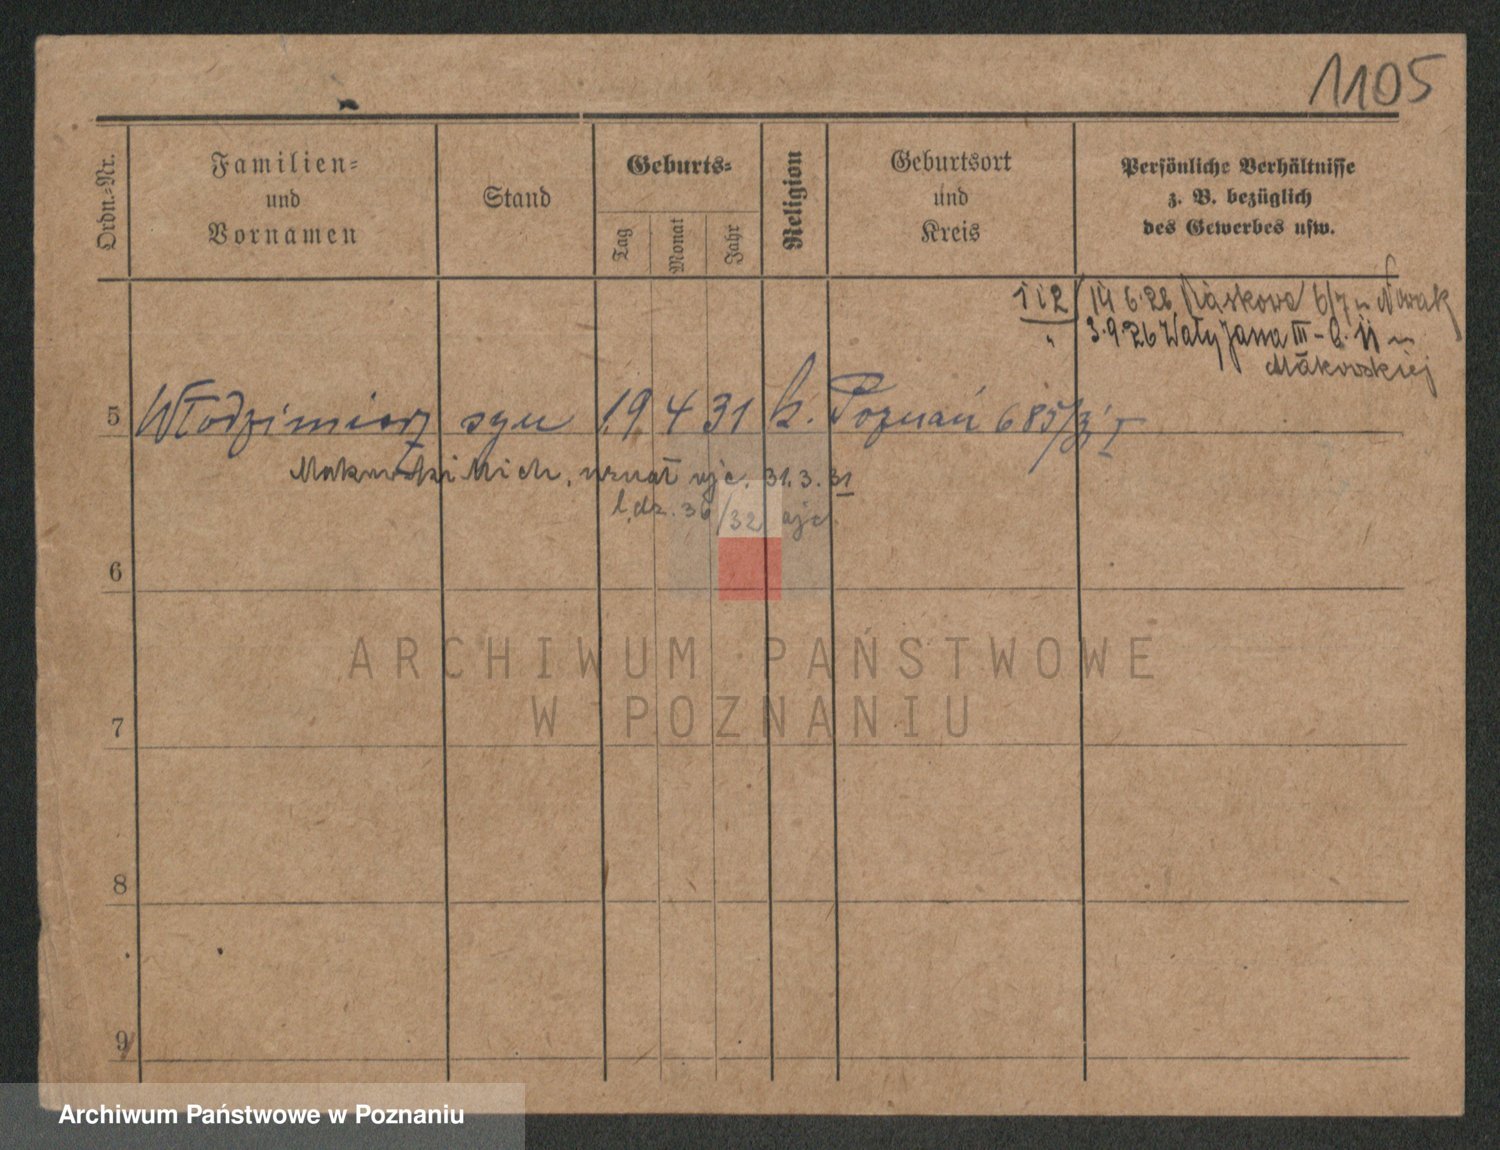 1105
Ordn.-Nr.
Familien-
und
Vornamen
Stand
Geburts-
Tag
Monat
Jahr
Religion
Geburtsort
und
Kreis
Persönliche Verhältnisse
z. B. bezüglich
des Gewerbes usw.
1 i 2 14 6.26 6/7 u Nowak
" 3.9.26 Wały Jana III - 11 u
Makowskiej
5 Włodzimierz syn 19 4 31 k. Poznań 685/31 I
Makowski Mich. uznał ojc. 31.3.31
l.dz. 36/32 ojc.
6
ARCHIWUM PAŃSTWOWE
W POZNANIU
7
8
9
Archiwum Państwowe w Poznaniu